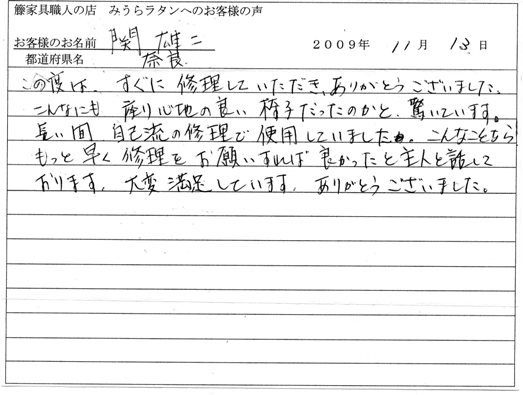 籐家具職人の店　みうらラタンへのお客様の声
お客様のお名前　関　雄二　2009年　11月　13日
都道府県名　奈良
この度は、すぐに修理していただき、ありがとうございました。
こんなにも座り心地の良い椅子だったのかと、驚いています。
長い間、自己流の修理で使用していました。こんなことなら
もっと早く修理をお願いすれば良かったと主人と話して
おります。大変満足しています。ありがとうございました。